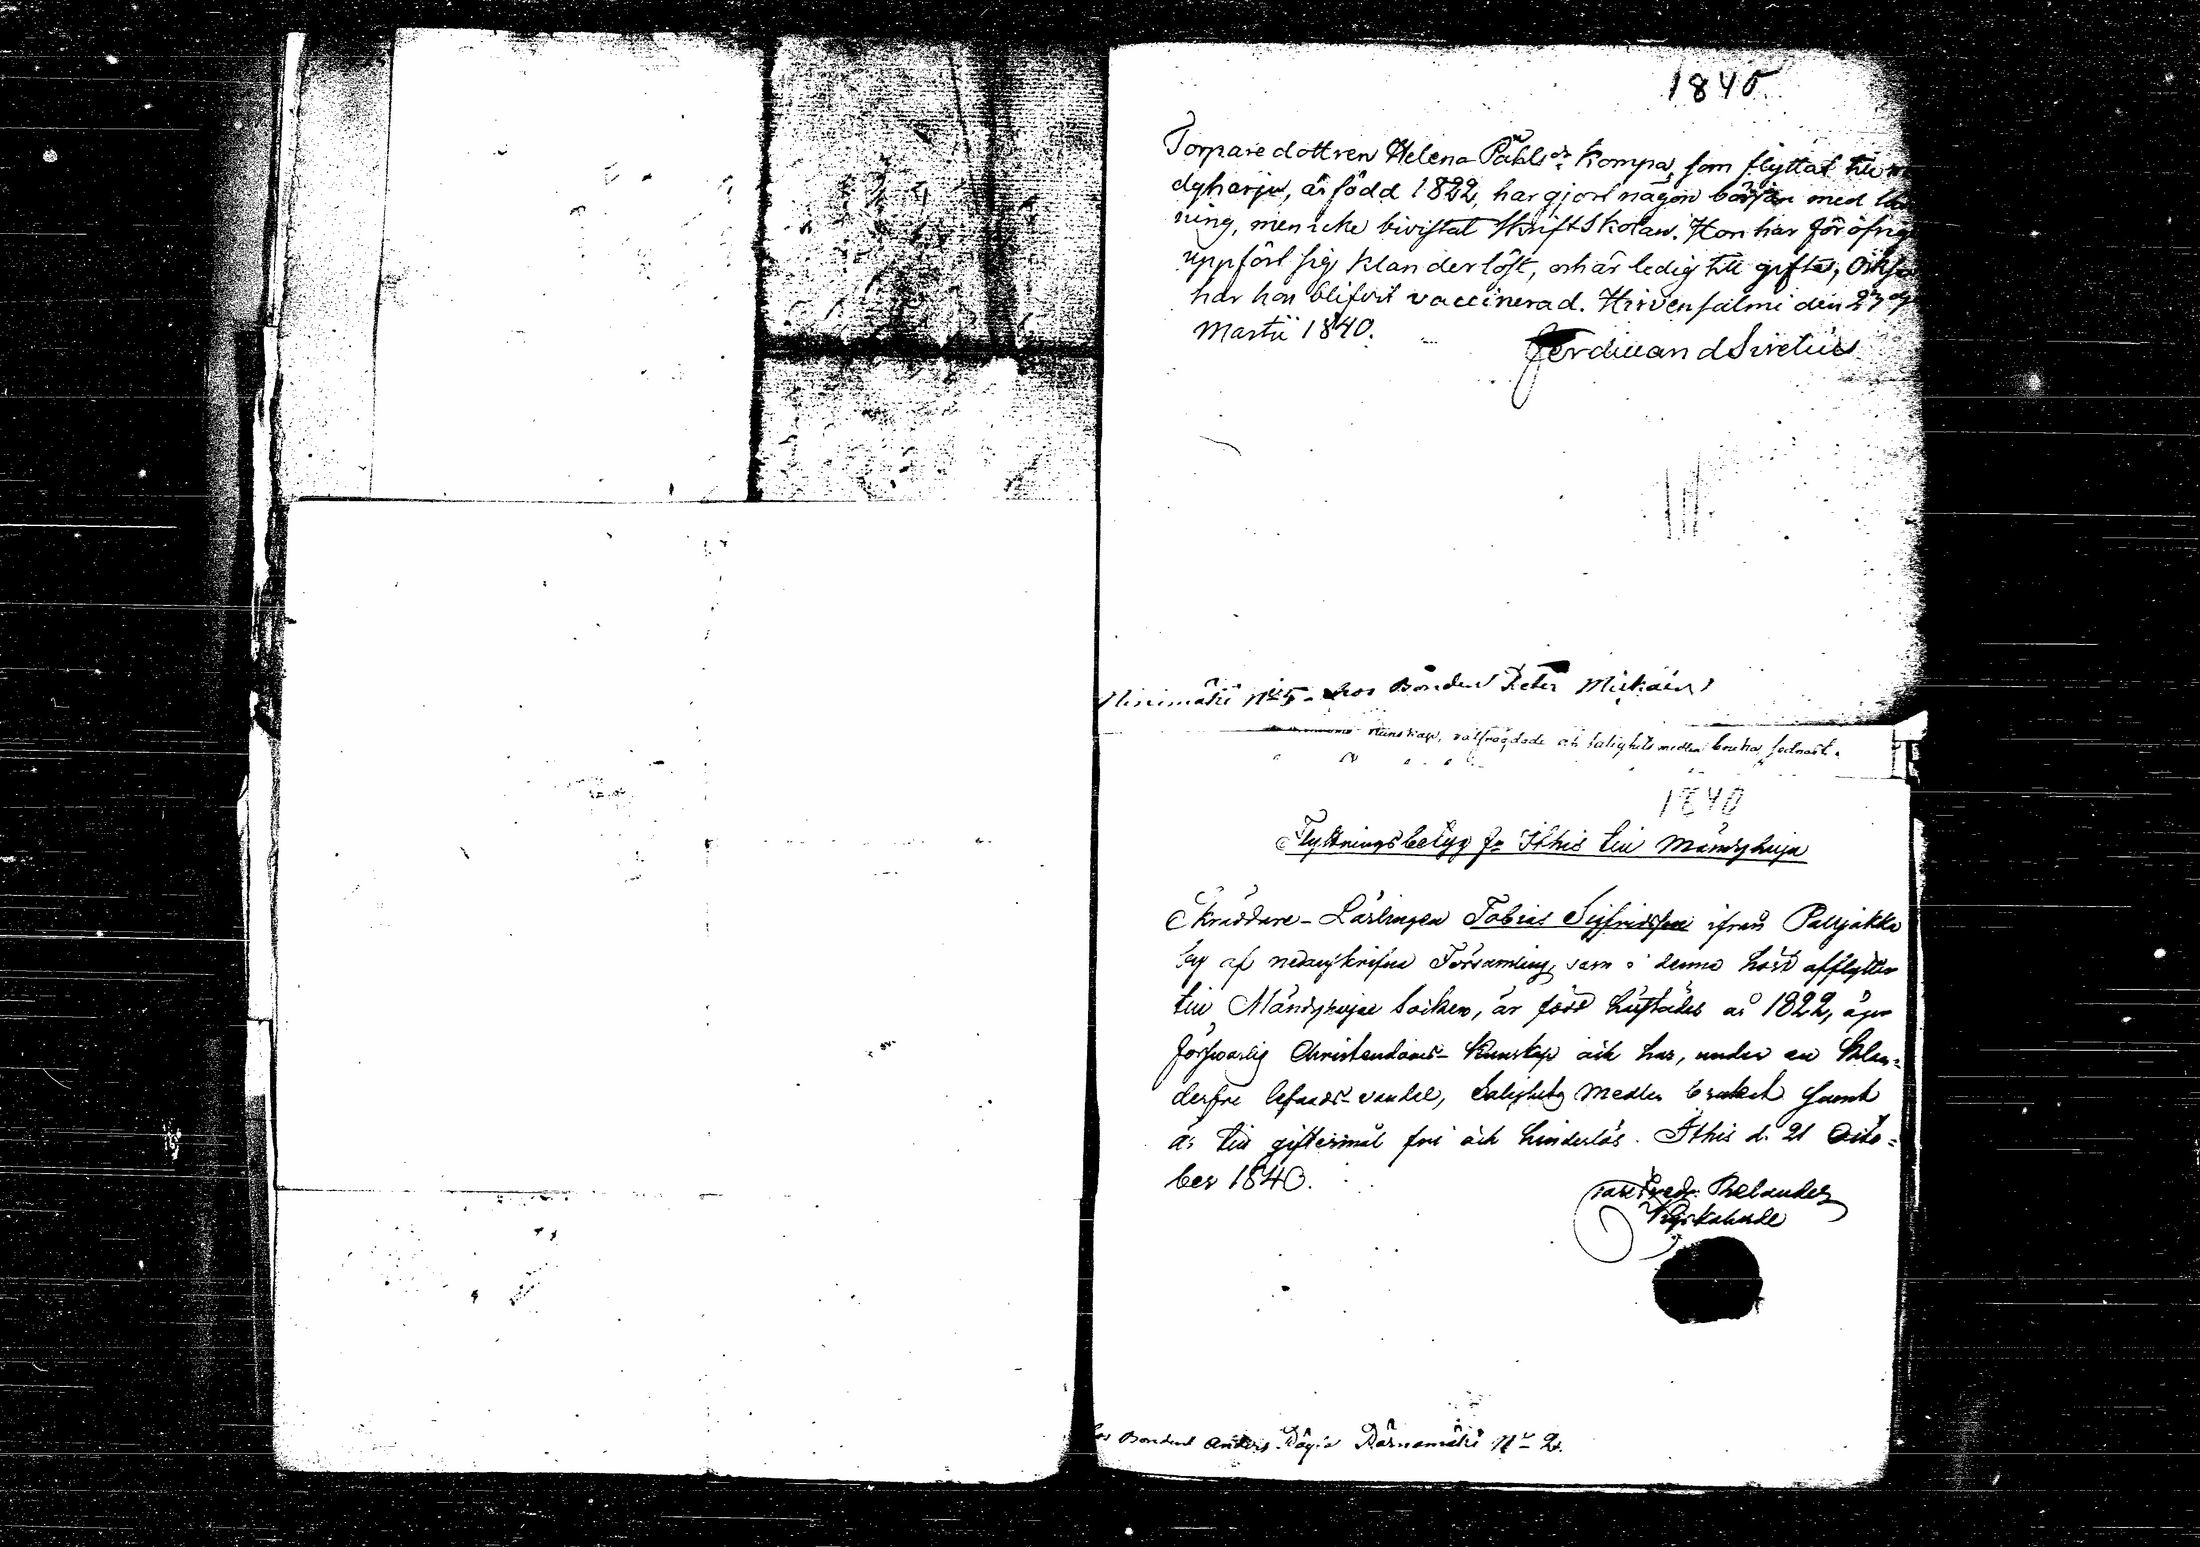 1840
Torpare dottren Helena Påhlsdr Kompa, som flyttat till
dyharju, är född 1822, har gjort någon början med
ning, men icke bivistat Skriftskolan. Hon har för öfrigt
uppfört sig klanderlöst, och är ledig till gifte,
har hon blifvit vaccinerad. Hirvensalmi den 27
Martii 1840.
Ferdinand Sirelius
Niinimäki No 5 hos Bonden Peter
kunskap, och salighets medlen
1840
Flyttningsbetyg fr Ithis till Mändyharju
Skräddare-Lärlingen Tobias Sigfridsson ifrån Paljakka
by af nedanskrifne Församling, som i denna höst afflyttar
till Mändyharju Socken, är född hitstädes år 1822, äger
försvarlig Christendoms-kunskap och har, under en klan-
derfri lefnads-vandel, Salighets Medlen brukat samt
är till giftermål fri och hinderlös. Ithis d. 21 Octo-
ber 1840.
Fredr. Relander
hos Bonden Anders No 2.